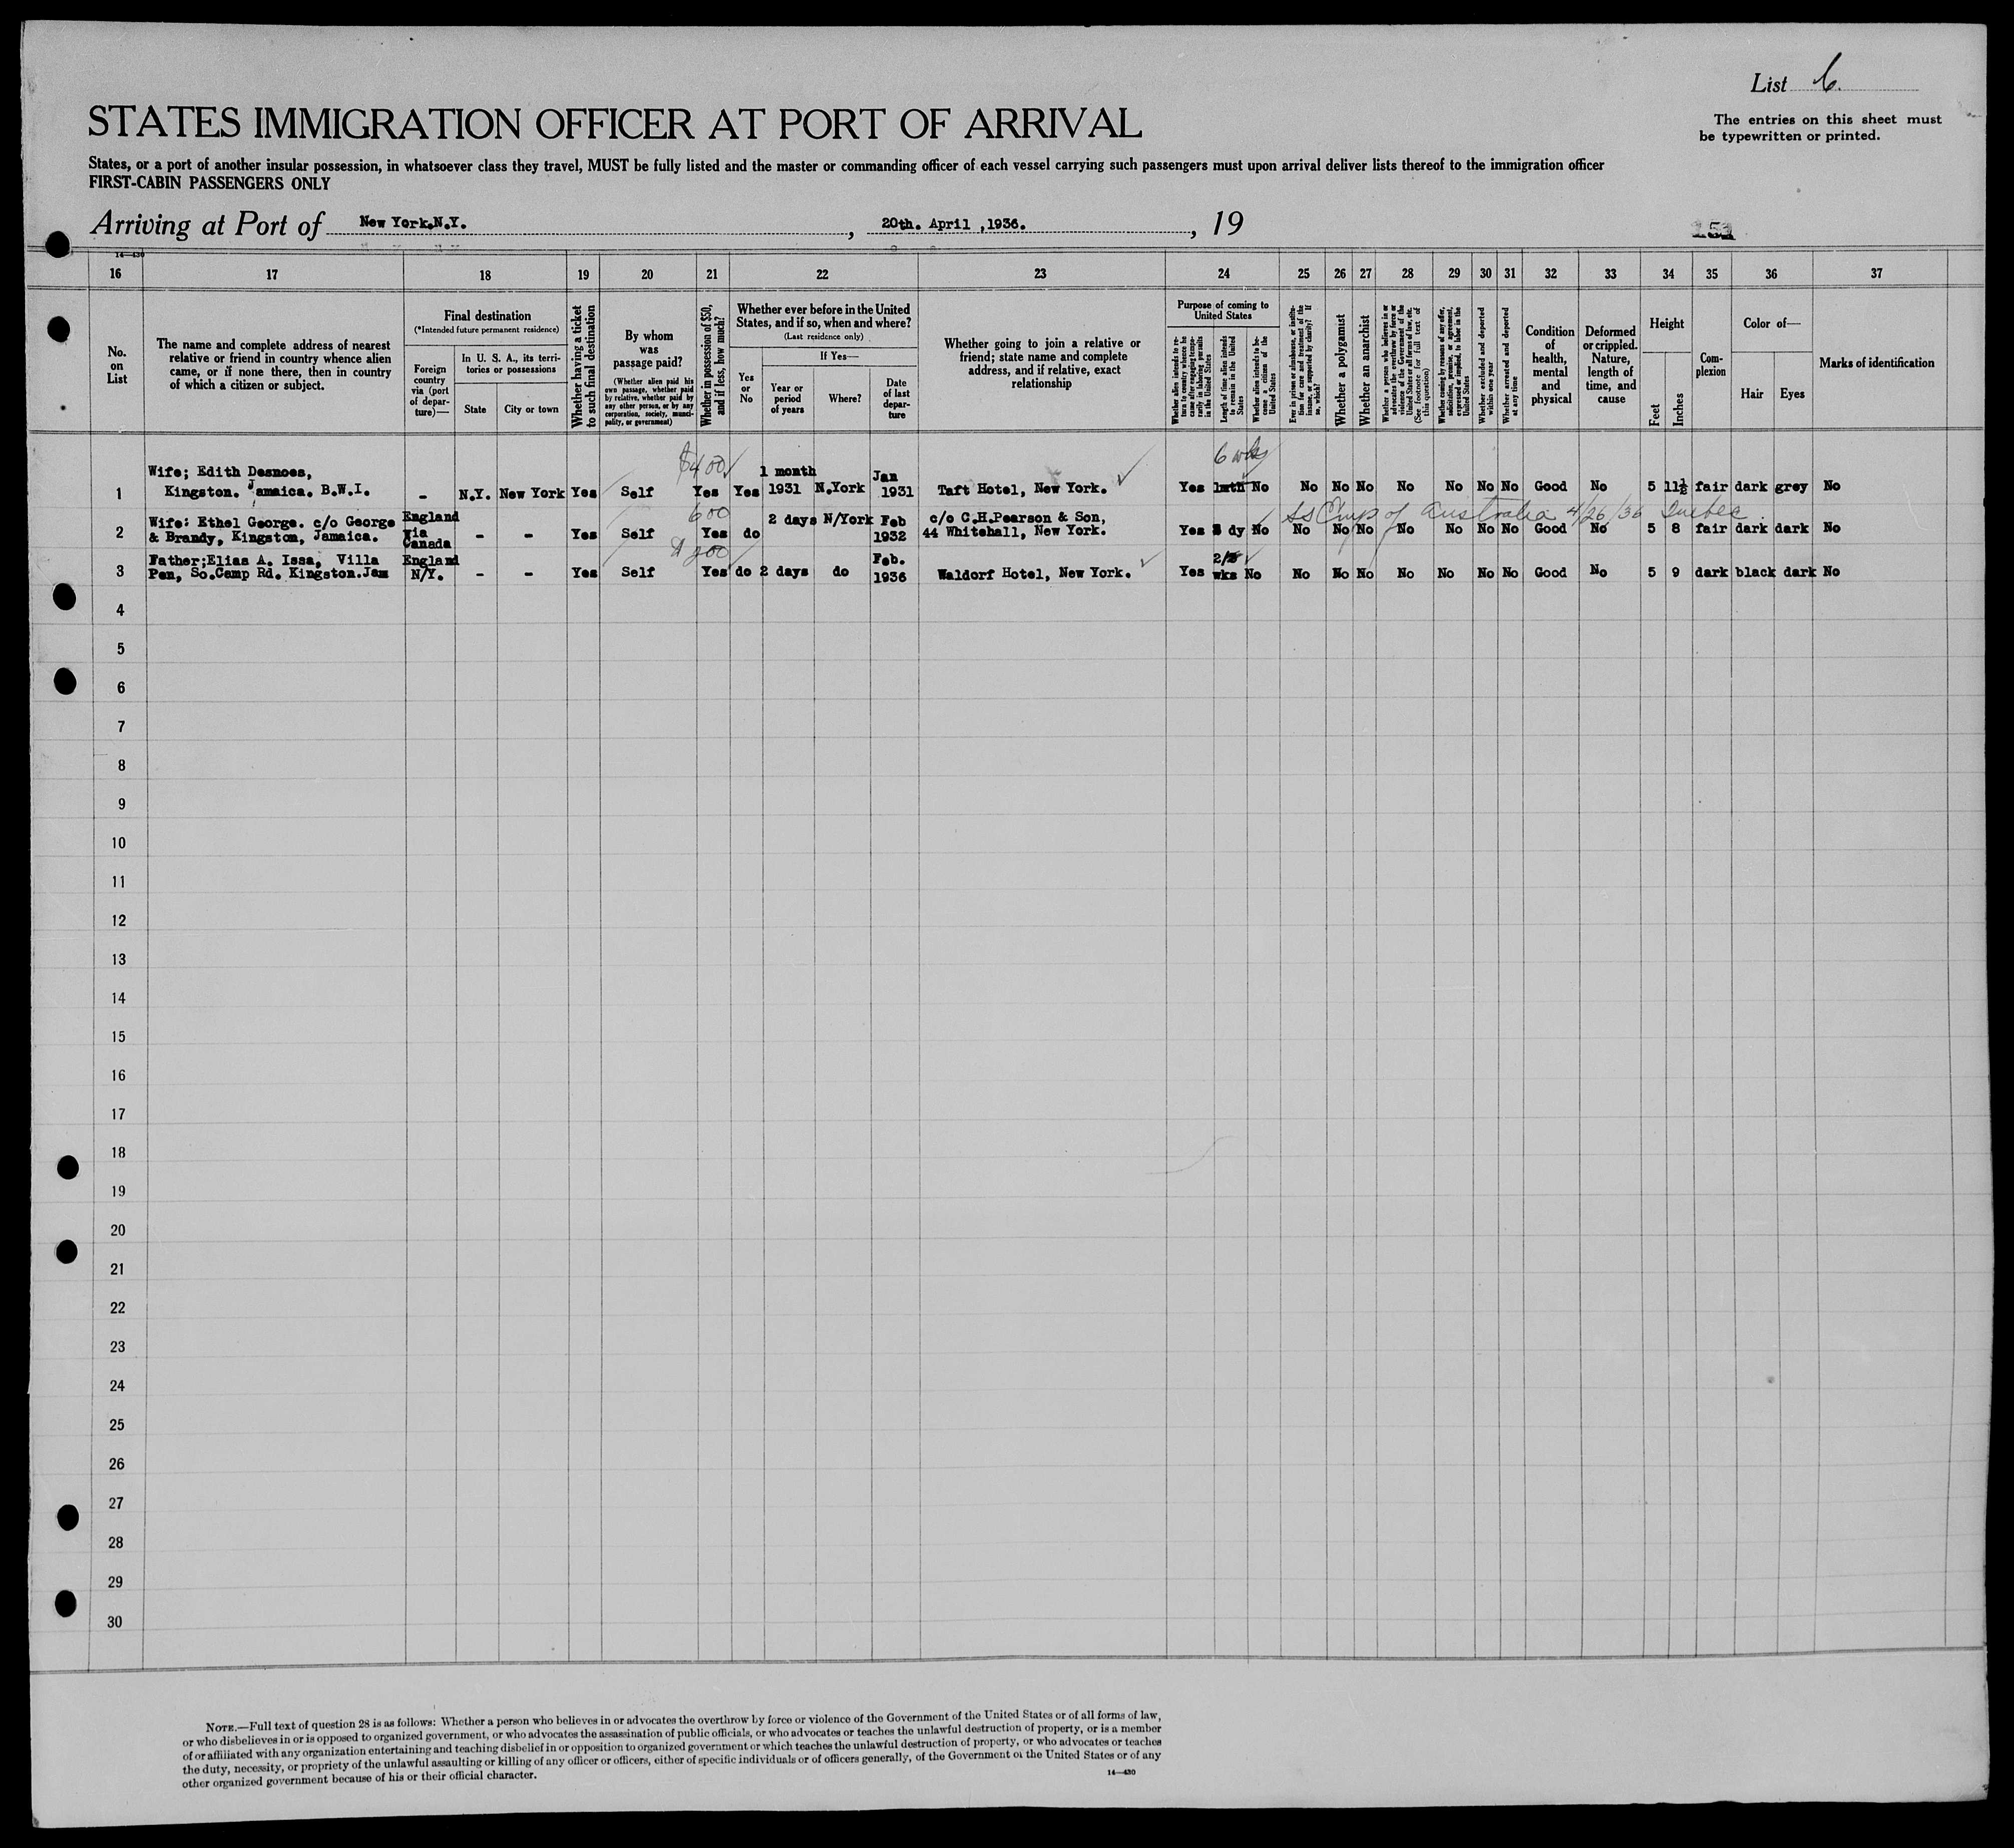 List 6.
The entries on this sheet must
be typewritten or printed.
STATES IMMIGRATION OFFICER AT PORT OF ARRIVAL
States, or a port of another insular possession, in whatsoever class they travel, MUST be fully listed and the master or commanding officer of each vessel carrying such passengers must upon arrival deliver lists thereof to the immigration officer
FIRST-CABIN PASSENGERS ONLY
Arriving at Port of New York.N.Y. , 20th. April ,1936. , 19
14—430
16 17 18 19 20 21 22 23 24 25 26 27 28 29 30 31 32 33 34 35 36 37
No.
on
List
The name and complete address of nearest
relative or friend in country whence alien
came, or if none there, then in country
of which a citizen or subject.
Final destination
(*Intended future permanent residence)
Foreign
country
via (port
of depar-
ture)—
In U. S. A., its terri-
tories or possessions
State
City or town
Whether having a ticket
to such final destination
By whom
was
passage paid?
(Whether alien paid his
own passage, whether paid
by relative, whether paid by
any other person, or by any
corporation, society, munici-
pality, or government)
Whether in possession of $50,
and if less, how much?
Whether ever before in the United
States, and if so, when and where?
(Last residence only)
Yes
or
No
If Yes—
Year or
period
of years
Where?
Date
of last
depar-
ture
Whether going to join a relative or
friend; state name and complete
address, and if relative, exact
relationship
Purpose of coming to
United States
Whether alien intends to re-
turn to country whence he
came after engaging tempo-
rarily in laboring pursuits
in the United States
Length of time alien intends
to remain in the United
States
Whether alien intends to be-
come a citizen of the
United States
Ever in prison or almshouse, or institu-
tion for care and treatment of the
insane, or supported by charity? If
so, which?
Whether a polygamist
Whether an anarchist
Whether a person who believes in or
advocates the overthrow by force or
violence of the Government of the
United States or all forms of law, etc.
(See footnote for full text of
this question)
Whether coming by reasons of any offer,
solicitation, promise, or agreement,
expressed or implied, to labor in the
United States
Whether excluded and deported
within one year
Whether arrested and deported
at any time
Condition
of
health,
mental
and
physical
Deformed
or crippled.
Nature,
length of
time, and
cause
Height
Feet
Inches
Com-
plexion
Color of—
Hair
Eyes
Marks of identification
$400 6 wks
Wife; Edith Desnoes, 1 month Jan
1 Kingston. Jamaica. B.W.I. - N.Y. New York Yes Self Yes Yes 1931 N.York 1931 Taft Hotel, New York. Yes 1mth No No No No No No No No Good No 5 11½ fair dark grey No
600 SS Emp of Australia 4/26/36 Quebec
Wife: Ethel George. c/o George England 2 days N/York Feb c/o C.H.Pearson & Son,
2 & Brandy, Kingston, Jamaica. Via Canada - - Yes Self Yes do 1932 44 Whitehall, New York. Yes dy No No No No No No No No Good No 5 8 fair dark dark No
$200
Father;Elias A. Issa, Villa England Feb. 2/3
3 Pen, So.Camp Rd. Kingston.Jam N/Y. - - Yes Self Yes do 2 days do 1936 Waldorf Hotel, New York. Yes wks No No No No No No No No Good No 5 9 dark black dark No
4
5
6
7
8
9
10
11
12
13
14
15
16
17
18
19
20
21
22
23
24
25
26
27
28
29
30
NOTE.—Full text of question 28 is as follows: Whether a person who believes in or advocates the overthrow by force or violence of the Government of the United States or of all forms of law,
or who disbelieves in or is opposed to organized government, or who advocates the assassination of public officials, or who advocates or teaches the unlawful destruction of property, or is a member
of or affiliated with any organization entertaining and teaching disbelief in or opposition to organized government or which teaches the unlawful destruction of property, or who advocates or teaches
the duty, necessity, or propriety of the unlawful assaulting or killing of any officer or officers, either of specific individuals or of officers generally, of the Government of the United States or of any
other organized government because of his or their official character.
14—430